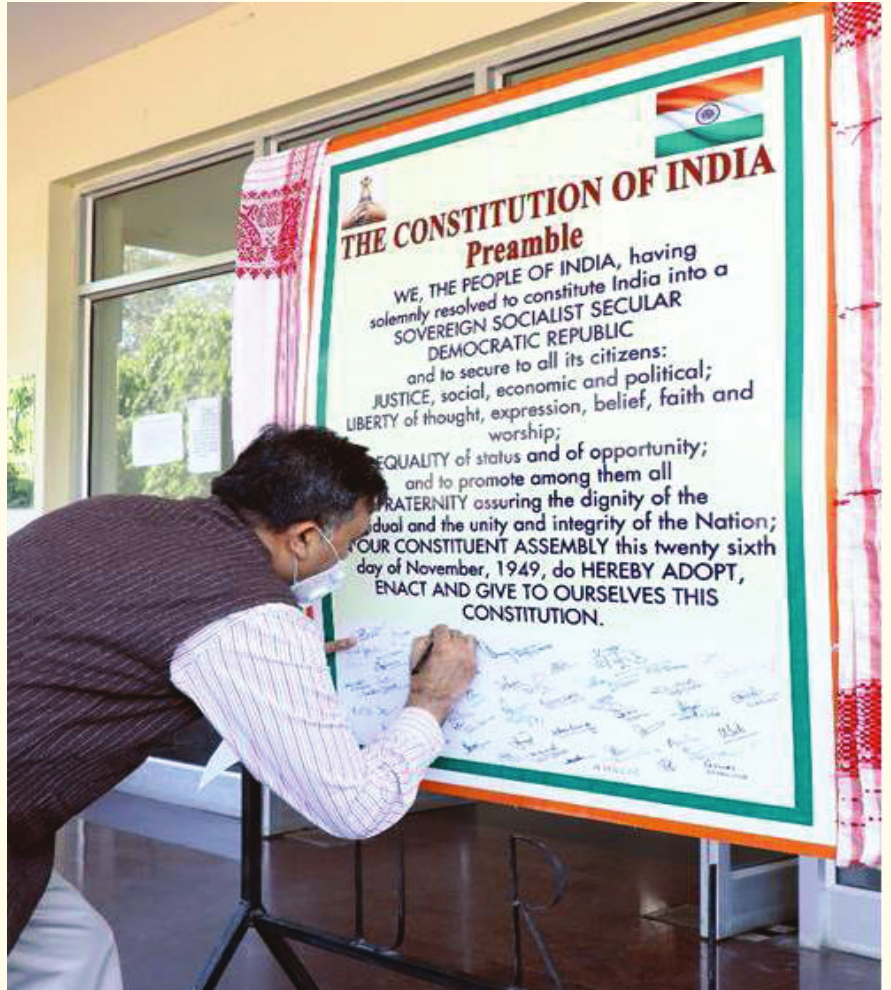 THE CONSTITUTION OF INDIA
Preamble
WE, THE PEOPLE OF INDIA, having
solemnly resolved to constitute India into a
SOVEREIGN SOCIALIST SECULAR
DEMOCRATIC REPUBLIC
and to secure to all its citizens:
JUSTICE, social, economic and political;
LIBERTY of thought, expression, belief, faith and
worship;
EQUALITY of status and of opportunity;
and to promote among them all
RATERNITY assuring the dignity of the
dual and the unity and integrity of the Nation;
OUR CONSTITUENT ASSEMBLY this twenty sixth
day of November, 1949, do HEREBY ADOPT,
ENACT AND GIVE TO OURSELVES THIS
CONSTITUTION.